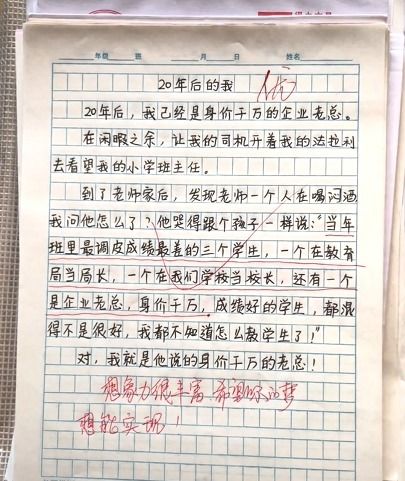 年级 班 月 日 姓名
20年后的我
优
20年后，我已经是身价千万的企业老总。
在闲暇之余，让我的司机开着我的法拉利
去看望我的小学班主任。
到了老师家后，发现老师一个人在喝闷酒
我问他怎么了？他哭得跟个孩子一样说："当年
班里最调皮成绩最差的三个学生，一个在教育
局当局长，一个在我们学校当校长，还有一个
是企业老总，身价千万，成绩好的学生，都混
得不是很好，我都不知道怎么教学生了！"
对，我就是他说的身价千万的老总！
想象力很丰富，希望你的梦
想能实现！